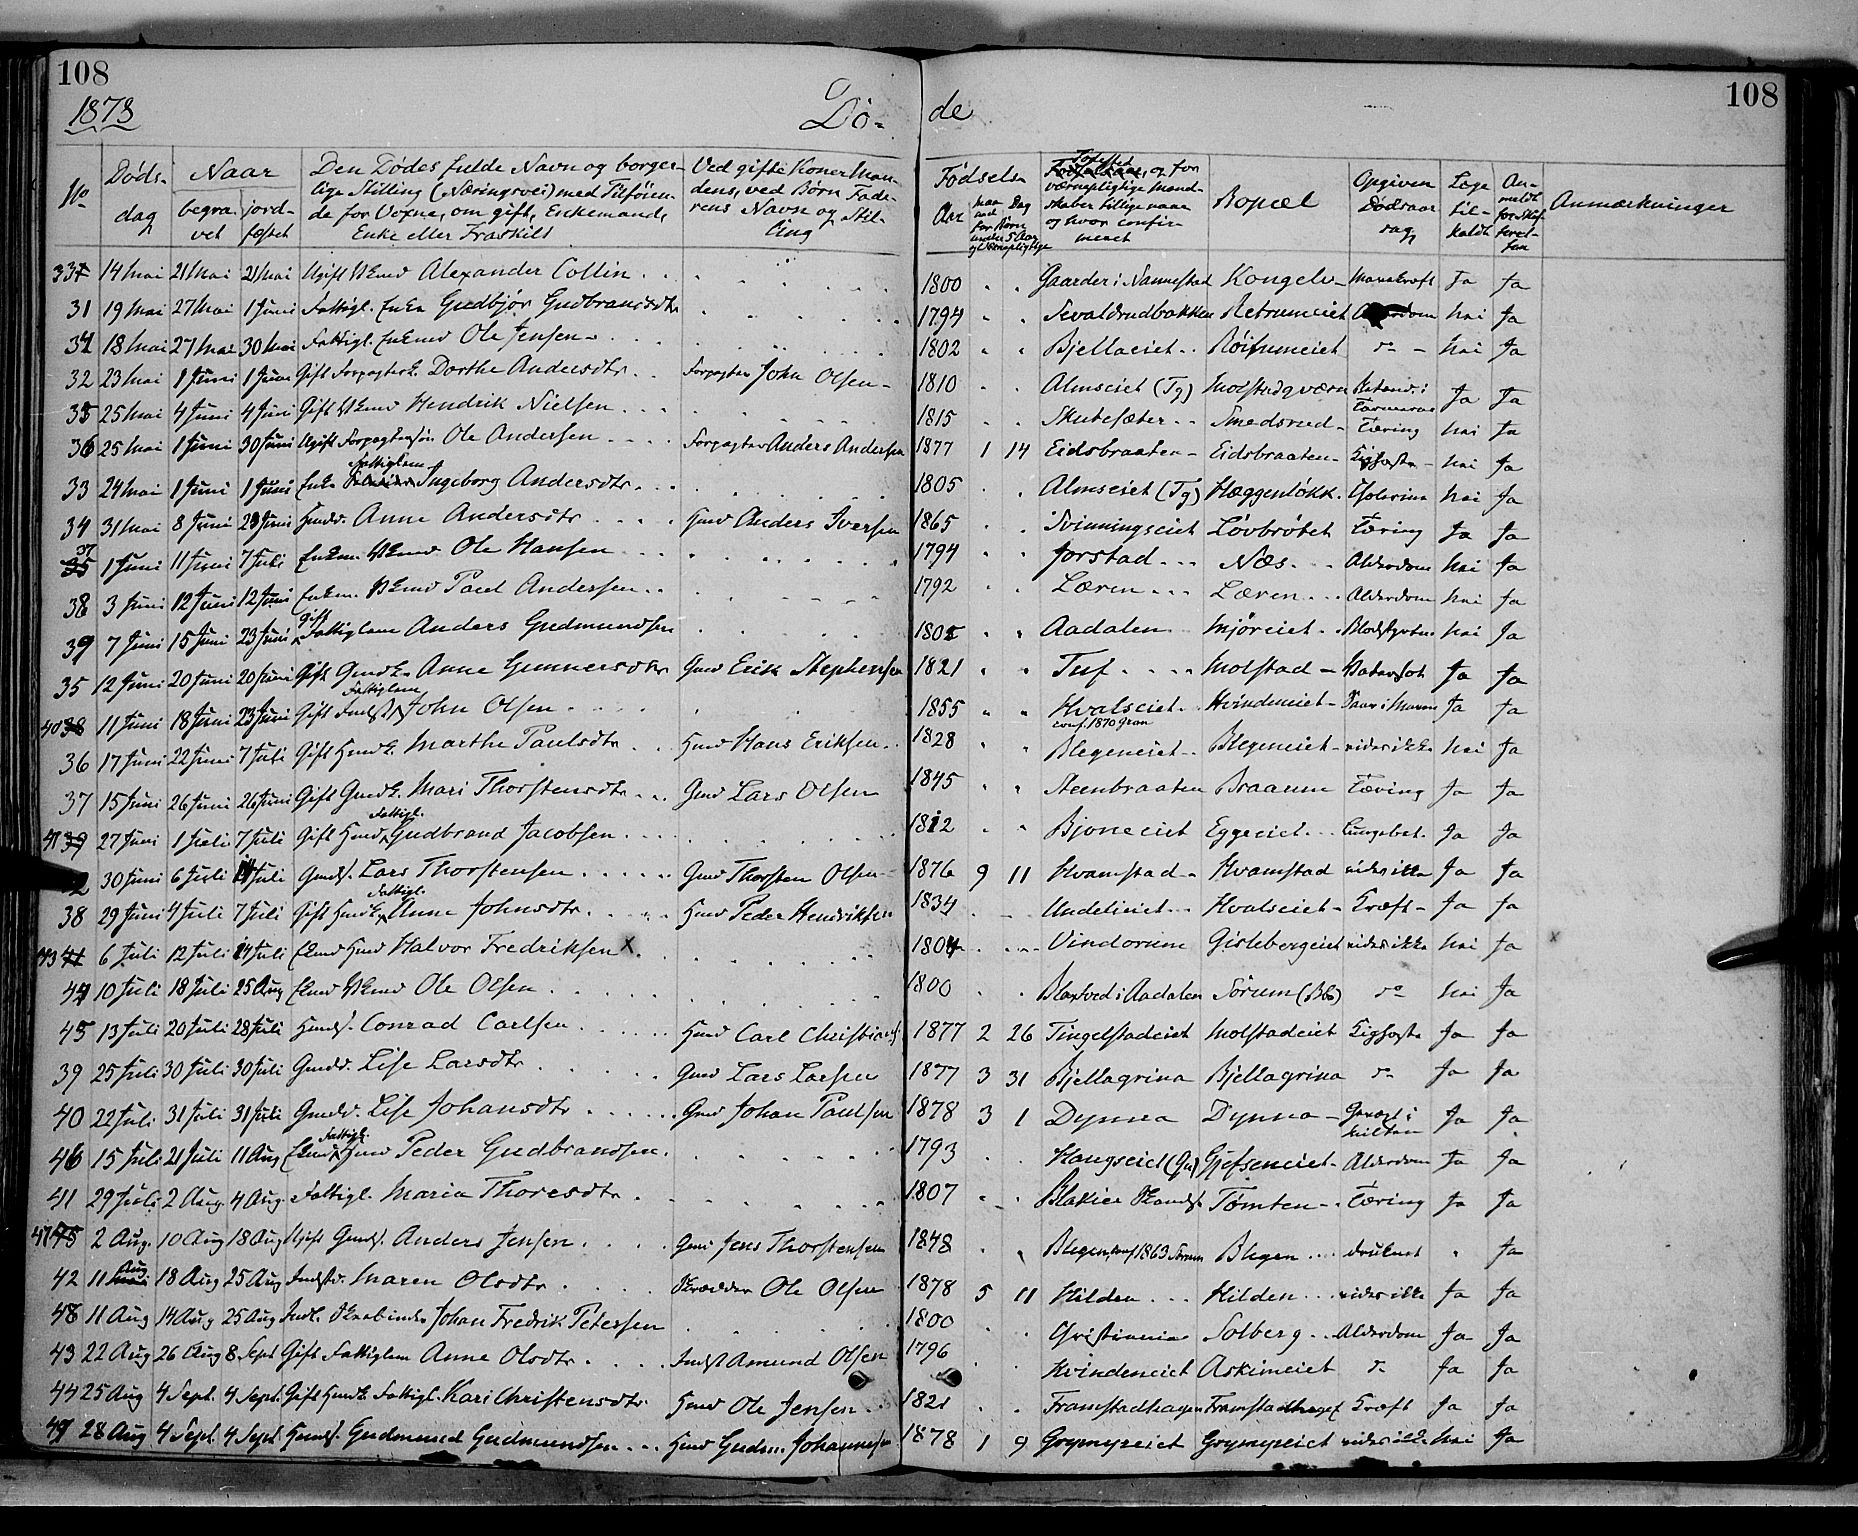 108 108
1878 Dø- de
No Døds-dag Naar begra-vet jord-fæstet Den Dødes fulde Navn og borger-lige Stilling (Næringsvei) med Tilføien-de for Voxne, om gift, Enkemand, Enke eller Fraskilt Ved gifte Koner Man-dens, ved Børn Fade-rens Navn og Stil-ling Fødsels- Aar Maaned Dag for Børn under 5 Aar og Værnepligtige Fødested, og for værnepligtige Mand-skaber tillige naar og hvor confir-meret Bopæl Opgiven Dødsaar-sag Læge til-kaldt An-meldt for Skif-teret-ten Anmærkninger
14 Mai 21 Mai 21 Mai Ugift Alexander Collin 1800 Gaarder i Nannestad Kongelv Mavekræft Ja Ja
31 19 Mai 27 Mai 1 Juni Fattigl. Enke Gudbjør Gudbrandsdtr 1794 Sevaldrudbakken Retrumeiet Alderdom Nei Ja
18 Mai 27 Mai 30 Mai Fattigl. Enkmd Ole Jensen 1802 Bjellaeiet Røisumeiet do Nei Ja
32 23 Mai 1 Juni 1 Juni Gift Forpagterk. Dorthe Andersdtr Forpagter John Olsen 1810 Almseiet (Tg) Molstadqværn Ja Ja
35 25 Mai 4 Juni 4 Juni Gift Hendrik Nielsen 1815 Skutesæter Smedsrud Tæring Nei Ja
36 25 Mai 1 Juni 30 Juni Ugift Forpagtersøn Ole Andersen Forpagter Anders Andersen 1877 1 14 Eidsbraaten Eidsbraaten Kighoste Nei Ja
33 24 Mai 1 Juni 1 Juni Enke Fattiglem Ingeborg Andersdtr 1805 Almseiet (Tg) Hæggenløkk. Cholerina Nei Ja
34 31 Mai 8 Juni 23 Juni Hmdd. Anne Andersdtr Hmd Anders Iversen 1865 Svinningseiet Løvbrøtet Tæring Ja Ja
37 1 Juni 11 Juni 7 Juli Enkem. Ole Hansen 1794 Jorstad Næs Alderdom Nei Ja
38 3 Juni 12 Juni 12 Juni Enkem. Paul Andersen 1792 Læren Læren Alderdom Nei Ja
39 7 Juni 15 Juni 23 Juni gift Fattiglem Anders Gudmundsen 1805 Aadalen Mjøreiet Blodstyrtn. Nei Ja
35 12 Juni 20 Juni 20 Juni Gift Gmdk. Anne Gunnersdtr Gmd Erik Stephensen 1821 Tuf Molstad Vatersot Ja Ja
40 38 11 Juni 18 Juni 23 Juni Gift Indst Fattiglem John Olsen 1855 Hvalseiet conf. 1870 Gran Hvindeneiet Saar i Maven Ja Ja
36 17 Juni 22 Juni 7 Juli Gift Hmdk. Marthe Paulsdtr Hmd Hans Eriksen 1828 Blegeneiet Blegeneiet vides ikke Nei Ja
37 15 Juni 26 Juni 26 Juni Gift Gmdk. Mari Thorstensdtr Gmd Lars Olsen 1845 Steenbraaten Braanum Tæring Ja Ja
41 39 27 Juni 1 Juli 7 Juli Gift Hmd Fattigl. Gudbrand Jacobsen 1812 Bjoneeiet Eggeeiet Lungebet. Ja Ja
30 Juni 6 Juli Juli Gmds. Lars Thorstensen Gmd Thorsten Olsen 1876 9 11 Hvamstad Hvamstad vides ikke Ja Ja
38 29 Juni 4 Juli 7 Juli Gift Hmdk Fattigl. Anne Johnsdtr Hmd Peder Hendriksen 1834 Undelieiet Hvalseiet Kræft Ja Ja
43 41 6 Juli 12 Juli 14 Juli Ekmd Hmd Halvor Fredriksen x 1804 Vindorum Gislebergeiet vides ikke Nei Ja x
44 10 Juli 18 Juli 25 Aug Ekmd Ole Olsen 1800 Blaxtved i Aadalen Sørum (Bb) do Nei Ja
45 13 Juli 20 Juli 28 Juli Hmds. Conrad Carlsen Hmd Carl Christians. 1877 2 26 Tingelstadeiet Molstadeiet Kighoste Ja Ja
39 25 Juli 30 Juli 30 Juli Gmdd. Lise Larsdtr Gmd Lars Larsen 1877 3 31 Bjellagrina Bjellagrina do Ja Ja
40 22 Juli 31 Juli 31 Juli Gmdd. Lise Johansdtr Gmd Johan Paulsen 1878 3 1 Dynna Dynna Ja Ja
46 15 Juli 21 Juli 11 Aug Ekmd Fattigl. Hmd Peder Gudbrandsen 1793 Haugseiet (Gn) Gjefseneiet Alderdom Ja Ja
41 29 Juli 2 Aug. 4 Aug. Fattigl. Maria Thoresdtr 1807 Blakier Tømten Tæring Ja Ja
47 45 2 Aug. 10 Aug 18 Aug Ugift Gmds. Anders Jensen Gmd Jens Thorstensen 1848 Blegen, conf 1863 Sørum Blegen druknet Ja
42 11 Aug 18 Aug 25 Aug Indstd. Maren Olsdtr Skrædder Ole Olsen 1878 5 11 Hilden Hilden vides ikke Ja Ja
48 11 Aug 14 Aug 25 Aug Indl. Johan Fredrik Petersen 1800 Christiania Solberg Alderdom Ja Ja
43 22 Aug 26 Aug 8 Sept Gift Fattiglem Anne Olsdtr Indst Amund Olsen 1796 Hvindeneiet Askimeiet do Ja Ja
44 25 Aug 4 Sept. 4 Sept. Gift Hmdk Fattigl. Kari Christensdtr Hmd Ole Jensen 1821 Framstadhagen Framstadhaget Kræft Ja Ja
49 28 Aug 4 Sept. 4 Sept. Hmds. Gudmund Gudmundsen Hmd Gudm. Johannesen 1878 1 9 Grymyreiet Grymyreiet vides ikke Nei Ja